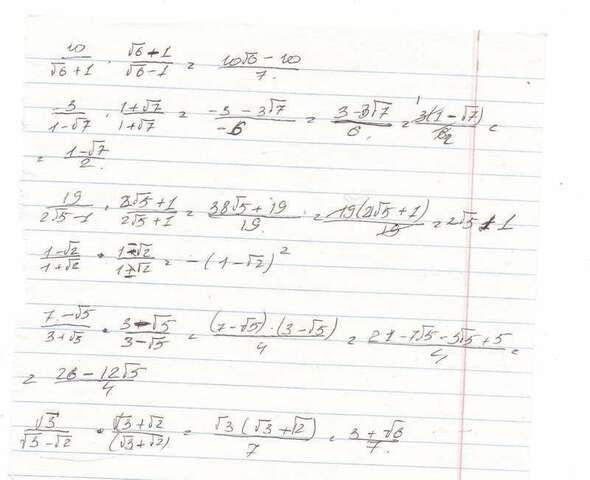 10/(√6+1) · (√6-1)/(√6-1) = (10√6-10)/7.
-3/(1-√7) · (1+√7)/(1+√7) = (-3-3√7)/-6 = (3-3√7)/6. = 3(1-√7)/62 =
= (1-√7)/2.
19/(2√5-1) · (2√5+1)/(2√5+1) = (38√5+19)/19. = 19(2√5+1)/19 = 2√5+1
(1-√2)/(1+√2) · (1-√2)/(1-√2) = -(1-√2)²
(7-√5)/(3+√5) · (3-√5)/(3-√5) = (7-√5)·(3-√5)/4 = (21-7√5-3√5+5)/4 =
= (26-12√5)/4
√3/(√3-√2) · (√3+√2)/(√3+√2) = √3(√3+√2)/7 = (3+√6)/7.